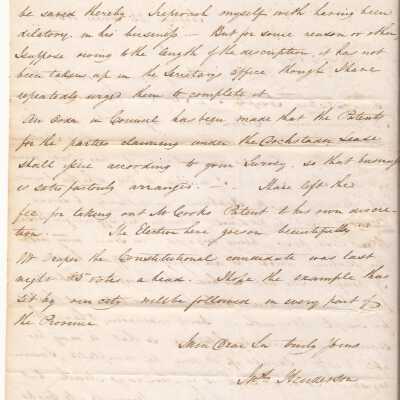 be saved thereby. I reproach myself with having been
dilatory in his business — But for some reason or other,
I suppose owing to the length of the description, it has not
been taken up in the Secretarys office though I have
repeatedly urged them to complete it —
An Order in Council has been made that the Patents
for the parties claiming under the Lease
shall issue according to your Survey, so that business
is satisfactorily arranged. — I have left the
fee for taking out Mr Cooks Patent to his own discre-
tion. The Election here goes on beautifully
Mr Draper the Constitutional candidate was last
night 85 votes ahead. I hope the example thus
set by our city will be followed in every part of
the Province
I am Dear Sir truly yours
Henderson